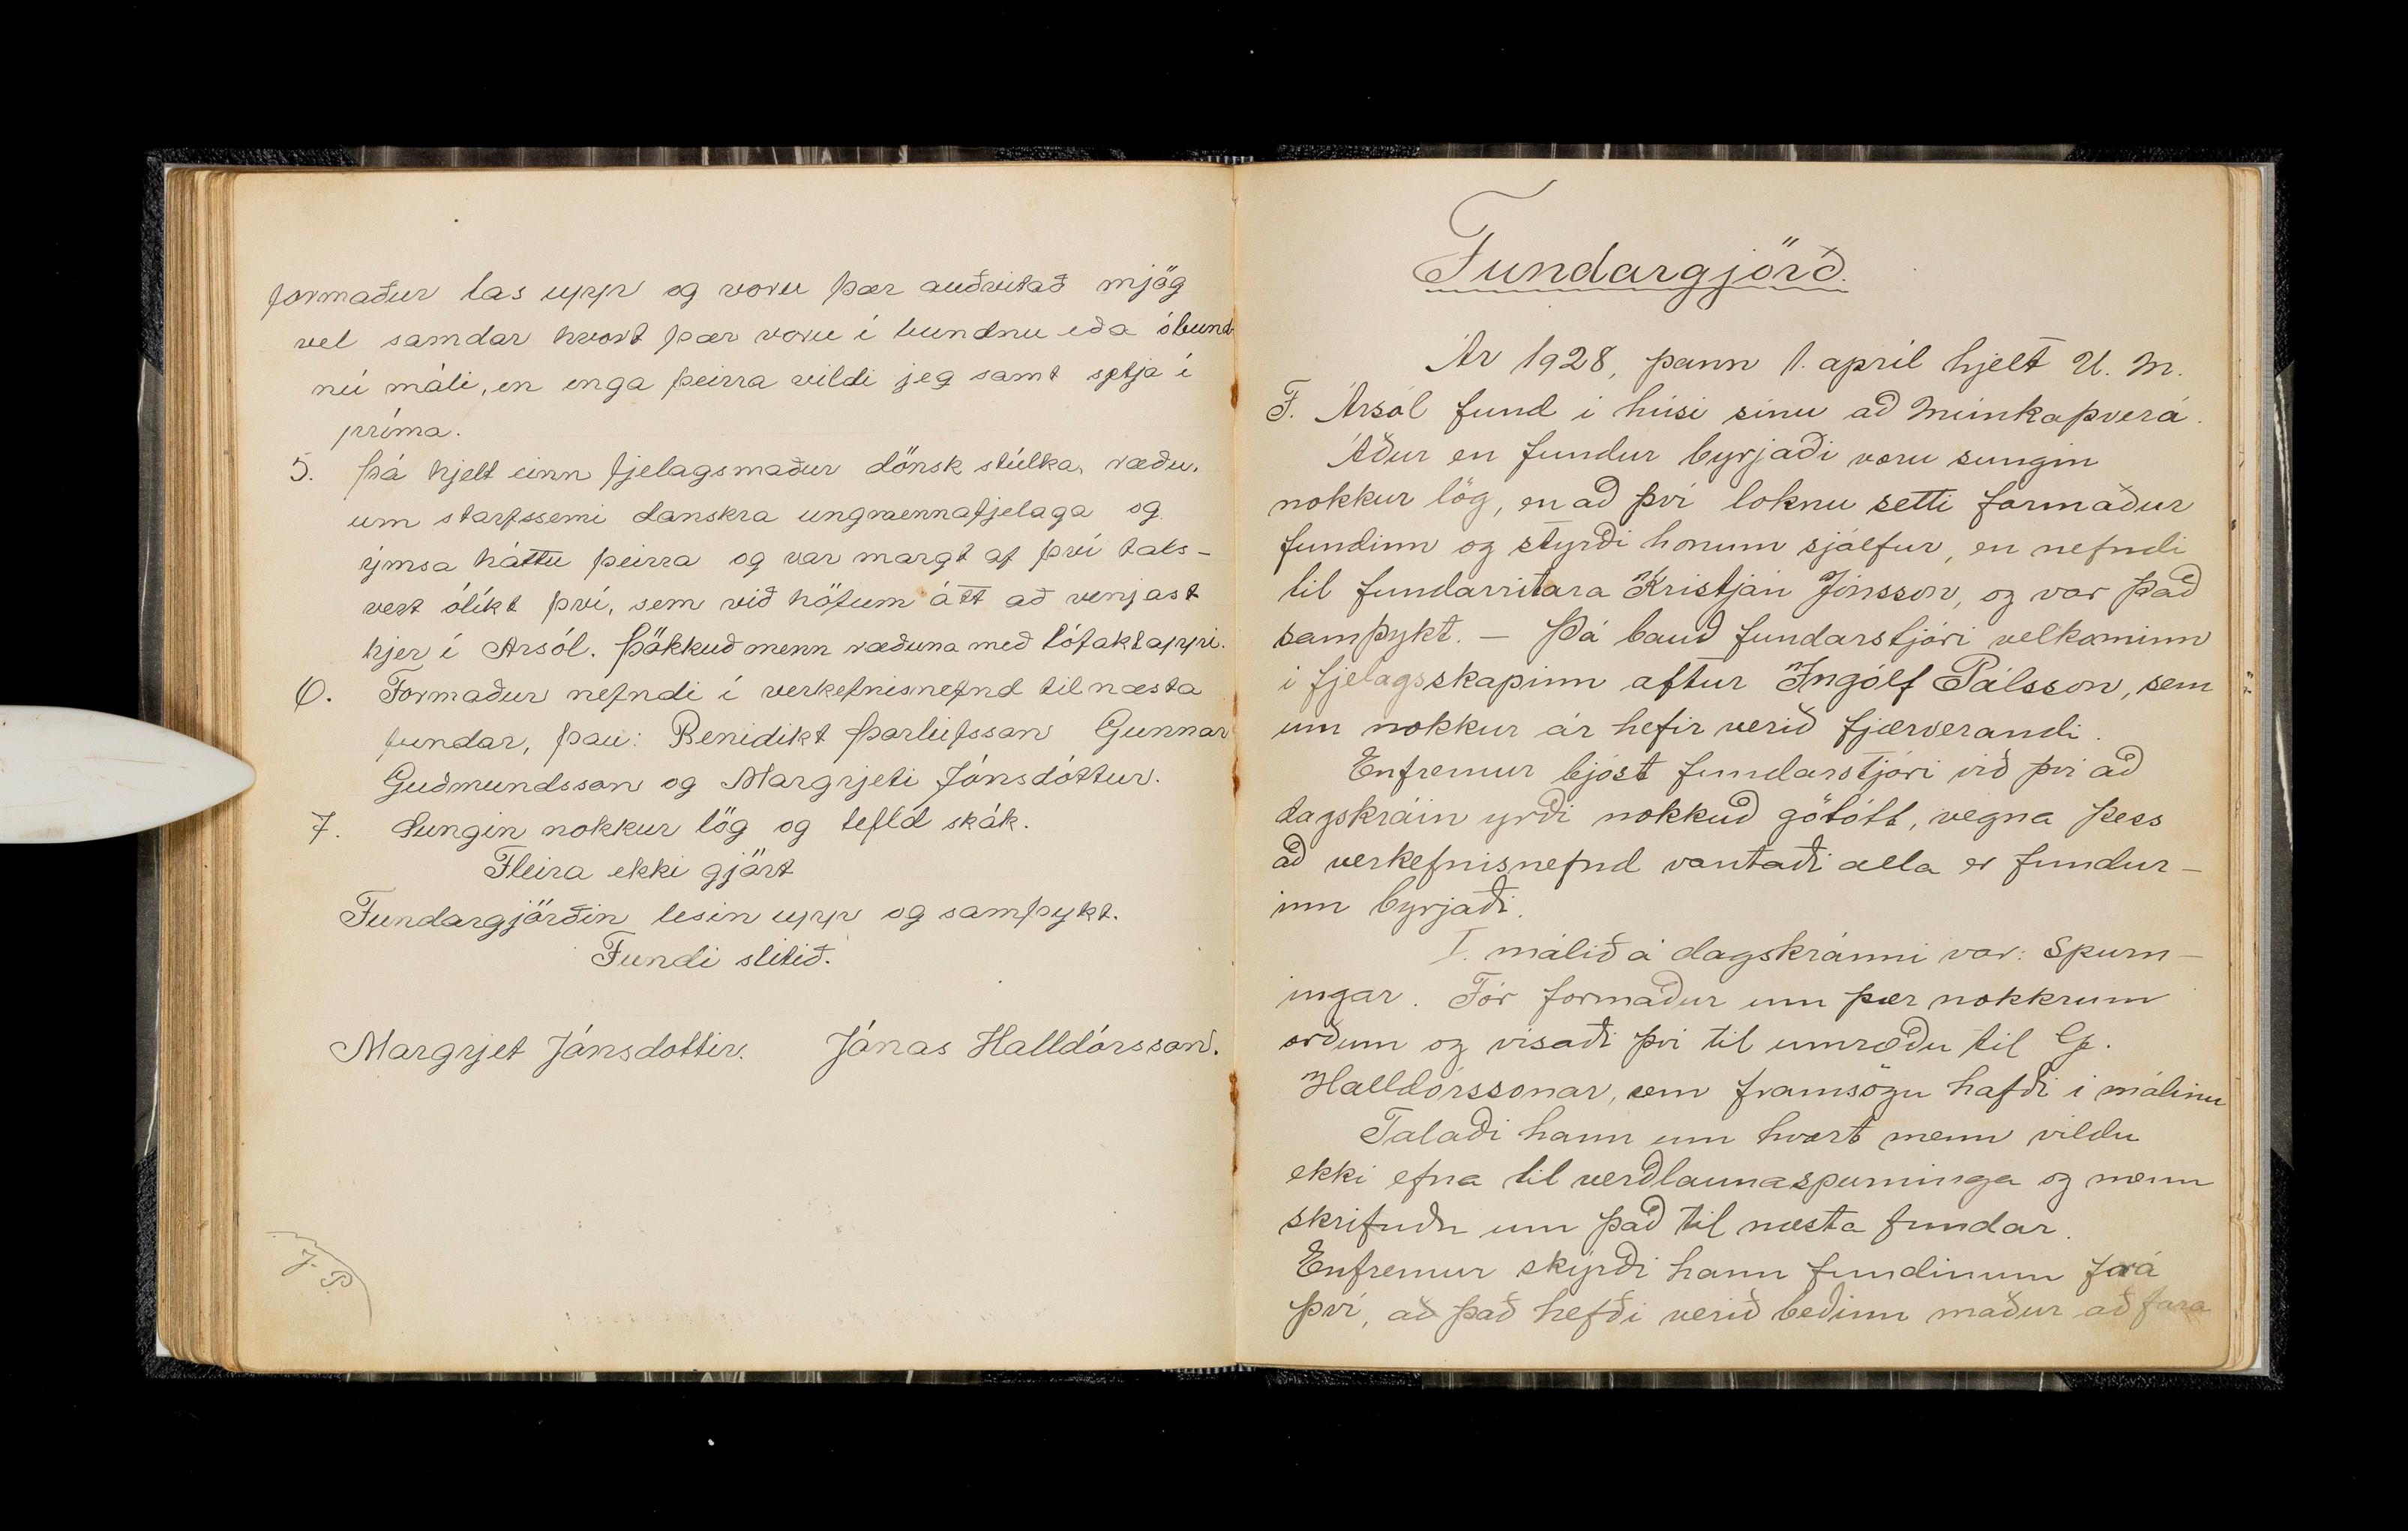 formaður las upp og voru þær auðvitað mjög
vel samdar hvort þær voru í bundnu eða óbund-
nú máli, en enga þeirra vildi jeg samt setja í
príma.
5. Þá hjelt einn fjelagsmaður dönsk stúlka, ræðu.
um starfssemi danskra ungmennafjelaga og
ýmsa háttu þeirra og var margt af því tals-
vert ólíkt því, sem við höfum átt að venjast
hjer í Arsól. Þökkuð menn ræðuna með lófaktappi.
6. Formaður nefndi í verkefnisnefnd til næsta
fundar, þau: Benidikt Þorleifsson Gunnar
Guðmundsson og Margrjeti Jónsdóttur.
7. Sungin nokkur lög og tefld skák.
Fleira ekki gjört
Fundargjörðin lesin upp og samþykt.
Fundi slitið.
Margrjet Jónsdottir. Jónas Halldórsson.
J. P.
Fundargjörð.
Ár 1928, þann 1. apríl hjelt U. M.
F. Ársól fund i húsi sínu að Munkaþverá.
Áður en fundur byrjaði voru sungin
nokkur lög, en að því loknu setti formaður
fundinn og stýrði honum sjálfur, en nefndi
til fundarritara Kristján Jónsson, og var það
samþykt. - Þá bauð fundarstjóri velkominn
i fjelagsskapinn aftur Ingólf Pálsson, sem
um nokkur ár hefir verið fjærverandi.
Enfremur bjóst fundarstjóri við því að
dagskráin yrði nokkuð götótt, vegna þess
að verkefnisnefnd vantaði alla er fundur-
inn byrjaði.
I. málið á dagskránni var: Spurn-
ingar. Fór formaður um þær nokkrum
orðum og visaði því til umræðu til G.
Halldórssonar, sem framsögu hafði i málinu
Talaði hann um hvort menn vildu
ekki efna til verðlaunaspurninga og menn
skrifuðu um það til næsta fundar.
Enfremur skýrði hann fundinum frá
því, að það hefði verið beðinn maður að fara